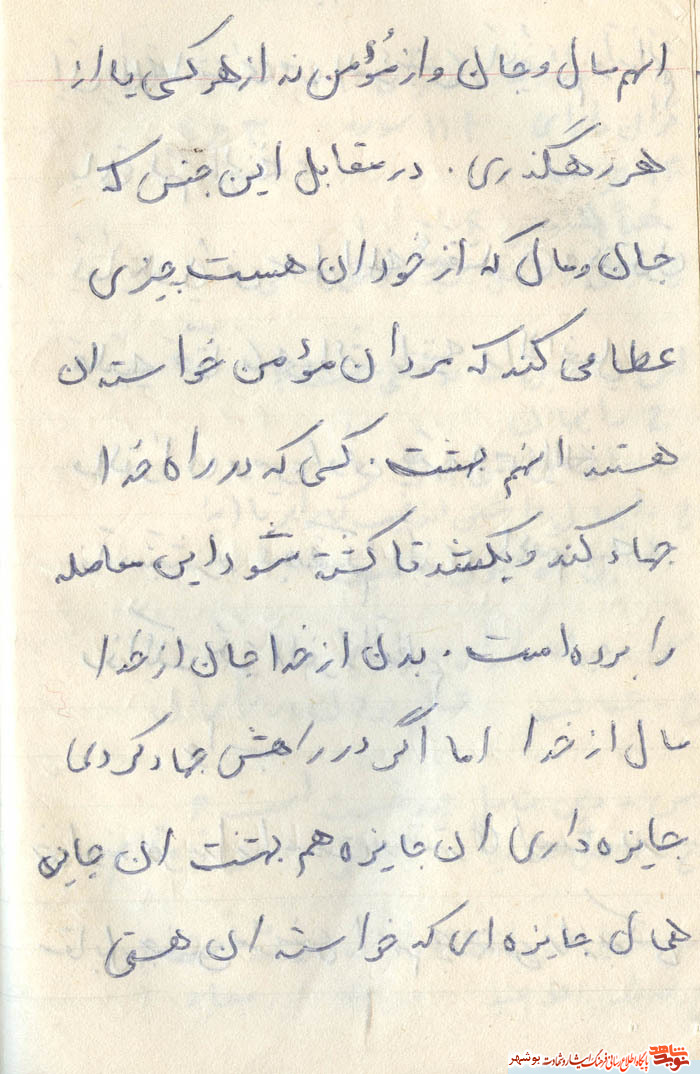 انهم مال و جان و از مُؤمن نه از هر کسی یا از
هر رهگذری . در مقابل این جنس که
جان و مال که از خودان هست چیزی
عطا می کند که مردان مؤمن خواستدان
هستند انهم بهشت . کسی که در راه خدا
جهاد کند و بکشد تا کشته شود این معامله
را برده است . بدن از خدا جان از خدا
مال از خدا اما اگر در راهش جهاد کردی
جایزه داری ان جایزه هم بهشت ان جایزه
همان جایزه ای که خواستد ان هستی
نوید شاهد
پایگاه اطلاع رسانی فرهنگ ایثار و شهادت بوشهر